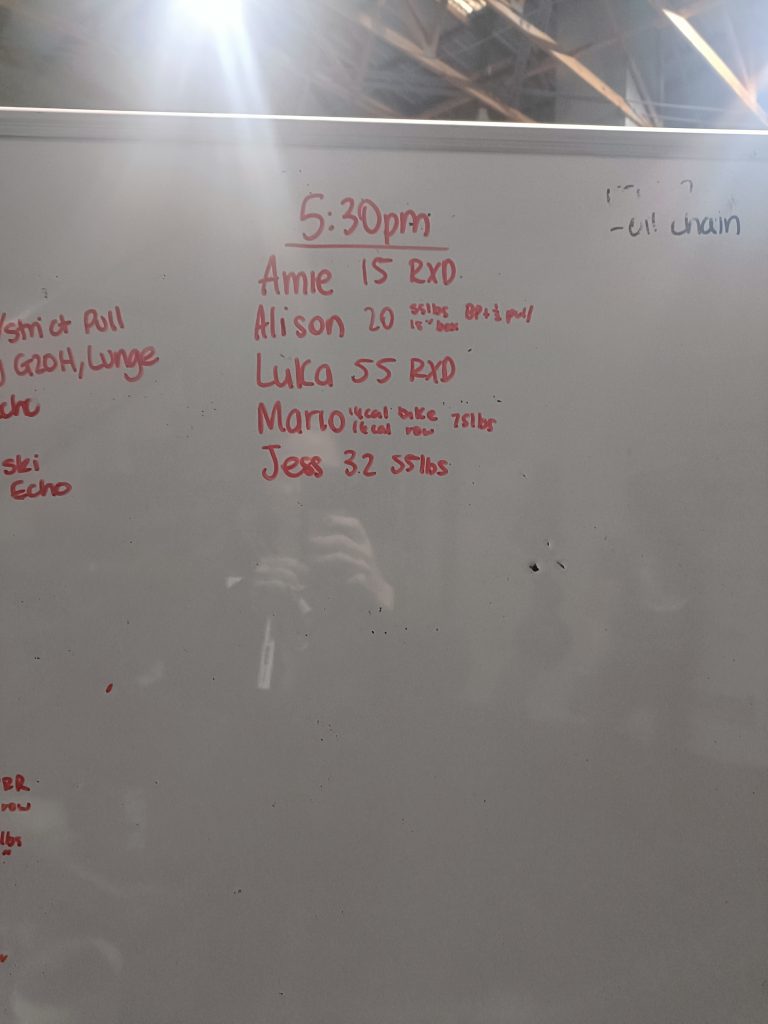 5:30pm
Amie 15 RXD
Alison 20 55lbs
Luka 55 RXD
Mario 14cal bike 14cal row 75lbs
Jess 3.2 55lbs
/strict Pull
G2OH, Lunge
ski
Echo
RR
row
lbs
chain